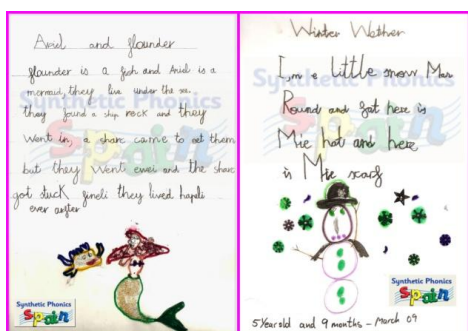 Ariel and flounder
flounder is a fish and Ariel is a
mermaid, they live under the sea.
they found a ship rock and they
went in a sharc came to eet them
but they went ewei and the sharc
got stuck fineli they lived hapili
ever aafter
Synthetic Phonics
Spain
Synthetic Phonics
Spain
Winter Wether
I,m a little snow Man
Round and fat here is
Mie hat and here
is Mie scarf
Synthetic Phonics
Spain
Synthetic Phonics
Spain
5 Year old and 9 months - March 09